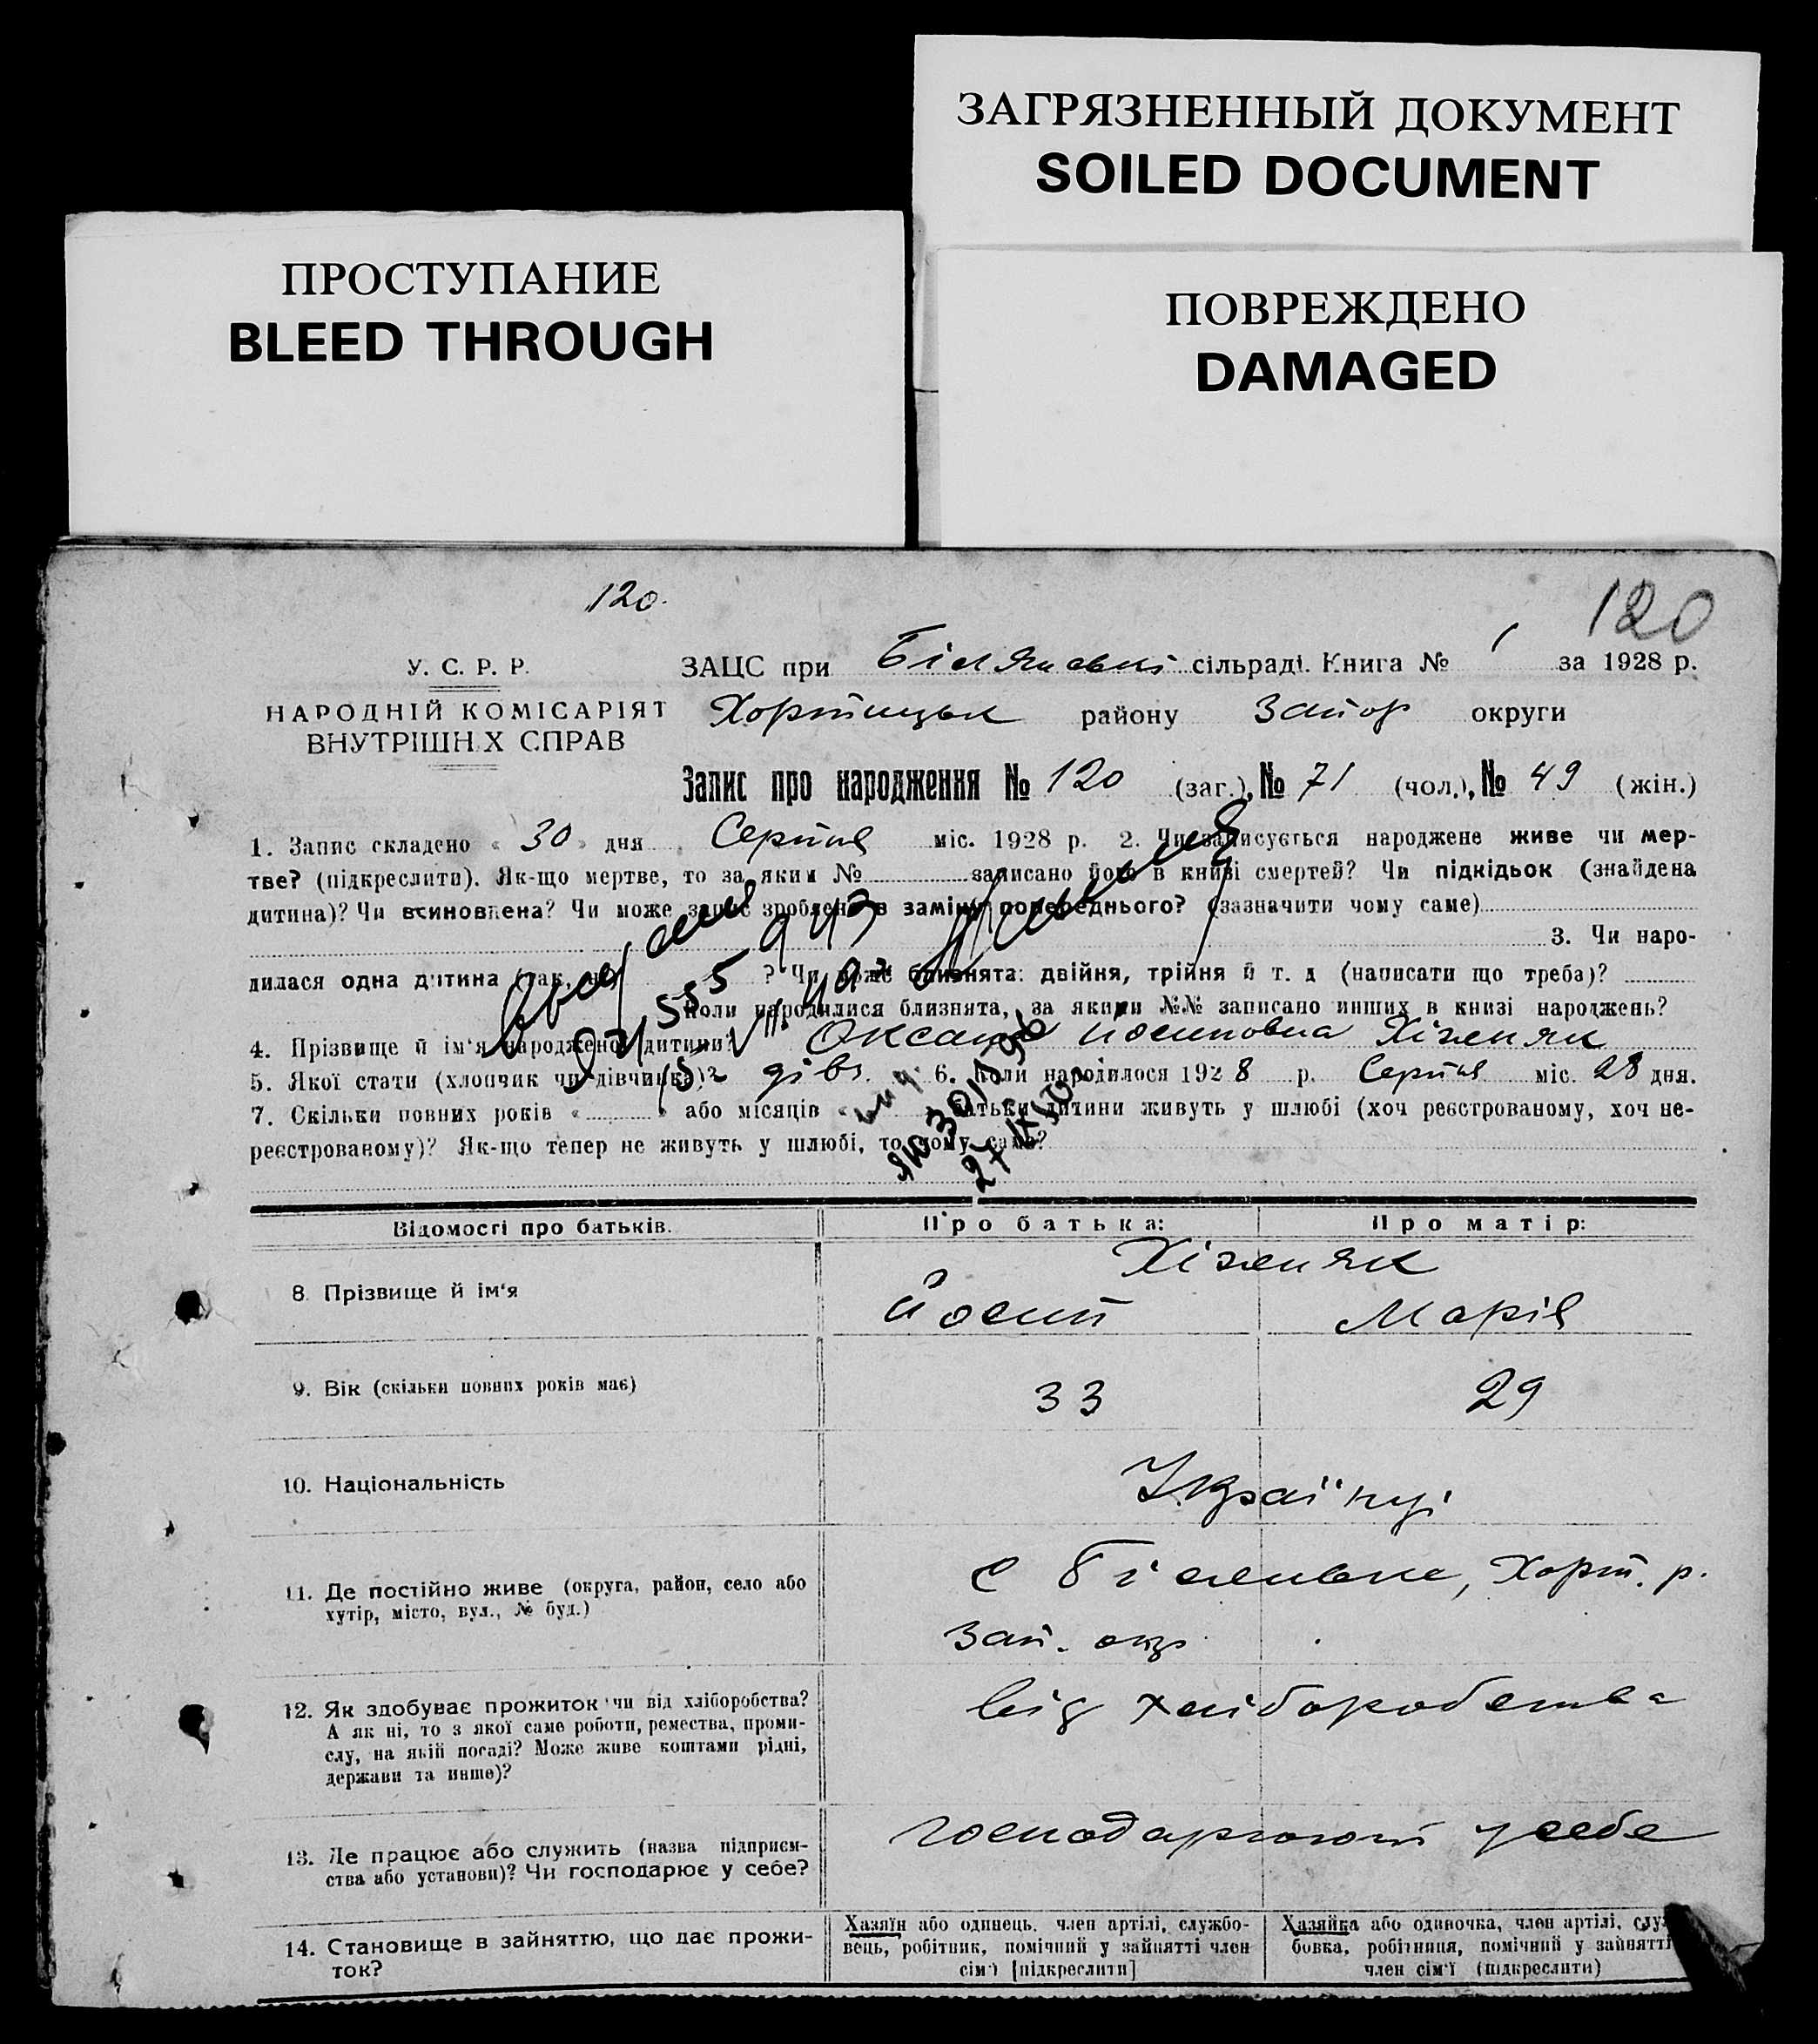 ЗАГРЯЗНЕННЫЙ ДОКУМЕНТ
SOILED DOCUMENT
ПРОСТУПАНИЕ
BLEED THROUGH
ПОВРЕЖДЕНО
DAMAGED
120.
120
У. С. Р. Р.
НАРОДНІЙ КОМІСАРІЯТ
ВНУТРІШНІХ СПРАВ
ЗАЦС при сільраді. Книга № 1 за 1928 р.
Хортицьк району Запор округи
Запис про народження № 120 (заг.), № 71 (чол.), № 49 (жін.)
1. Запис складено « 30 » дня Серпня міс. 1928 р. 2. Чи записується народжене живе чи мер-
тве? (підкреслити). Як-що мертве, то за яким № записано його в книзі смертей? Чи підкідьок (знайдена
дитина)? Чи всиновлена? Чи може запис зроблено в заміну попереднього? (зазначити чому саме)
3. Чи наро-
дилася одна дитина (так, ні) ? Чи може близнята: двійня, трійня й т. д (написати що треба)?
Коли народилися близнята, за якими №№ записано инших в книзі народжень?
4. Прізвище й ім‘я народженої дитини? Оксана Йосиповна Хіжняк
5. Якої стати (хлопчик чи дівчинка)? дівч. 6. Коли народілося 1928 р. Серпня міс. 28 дня.
7. Скільки повних років « » або місяців « батьки дитини живуть у шлюбі (хоч реєстрованому, хоч не-
реєстрованому)? Як-що тепер не живуть у шлюбі, то чому саме?
Відомості про батьків. Про батька: Про матір:
Хіжняк
8. Прізвище й ім‘я Йосип Марія
9. Вік (скільки повних років має) 33 29
10. Національність Українці
11. Де постійно живе (округа, район, село або
хутір, місто, вул., № буд.)
с Біленьке, Хорт. р.
Зап. окр
12. Як здобуває прожиток чи від хліборобства?
А як ні, то з якої саме роботи, ремества, проми-
слу, на якій посаді? Може живе коштами рідні,
держави та инше)?
від хліборобства
13. Де працює або служить (назва підприєм-
ства або установи)? Чи господарює у себе?
господарюють у себе
14. Становище в зайняттю, що дає прожи-
ток?
Хазяїн або одинець, член артілі, службо-
вець, робітник, помічний у зайнятті член
сім‘ї [підкреслити]
Хазяйка або одиночка, член артілі, служ
бовка, робітниця, помічний у зайнятті
член сім‘ї (підкреслити)